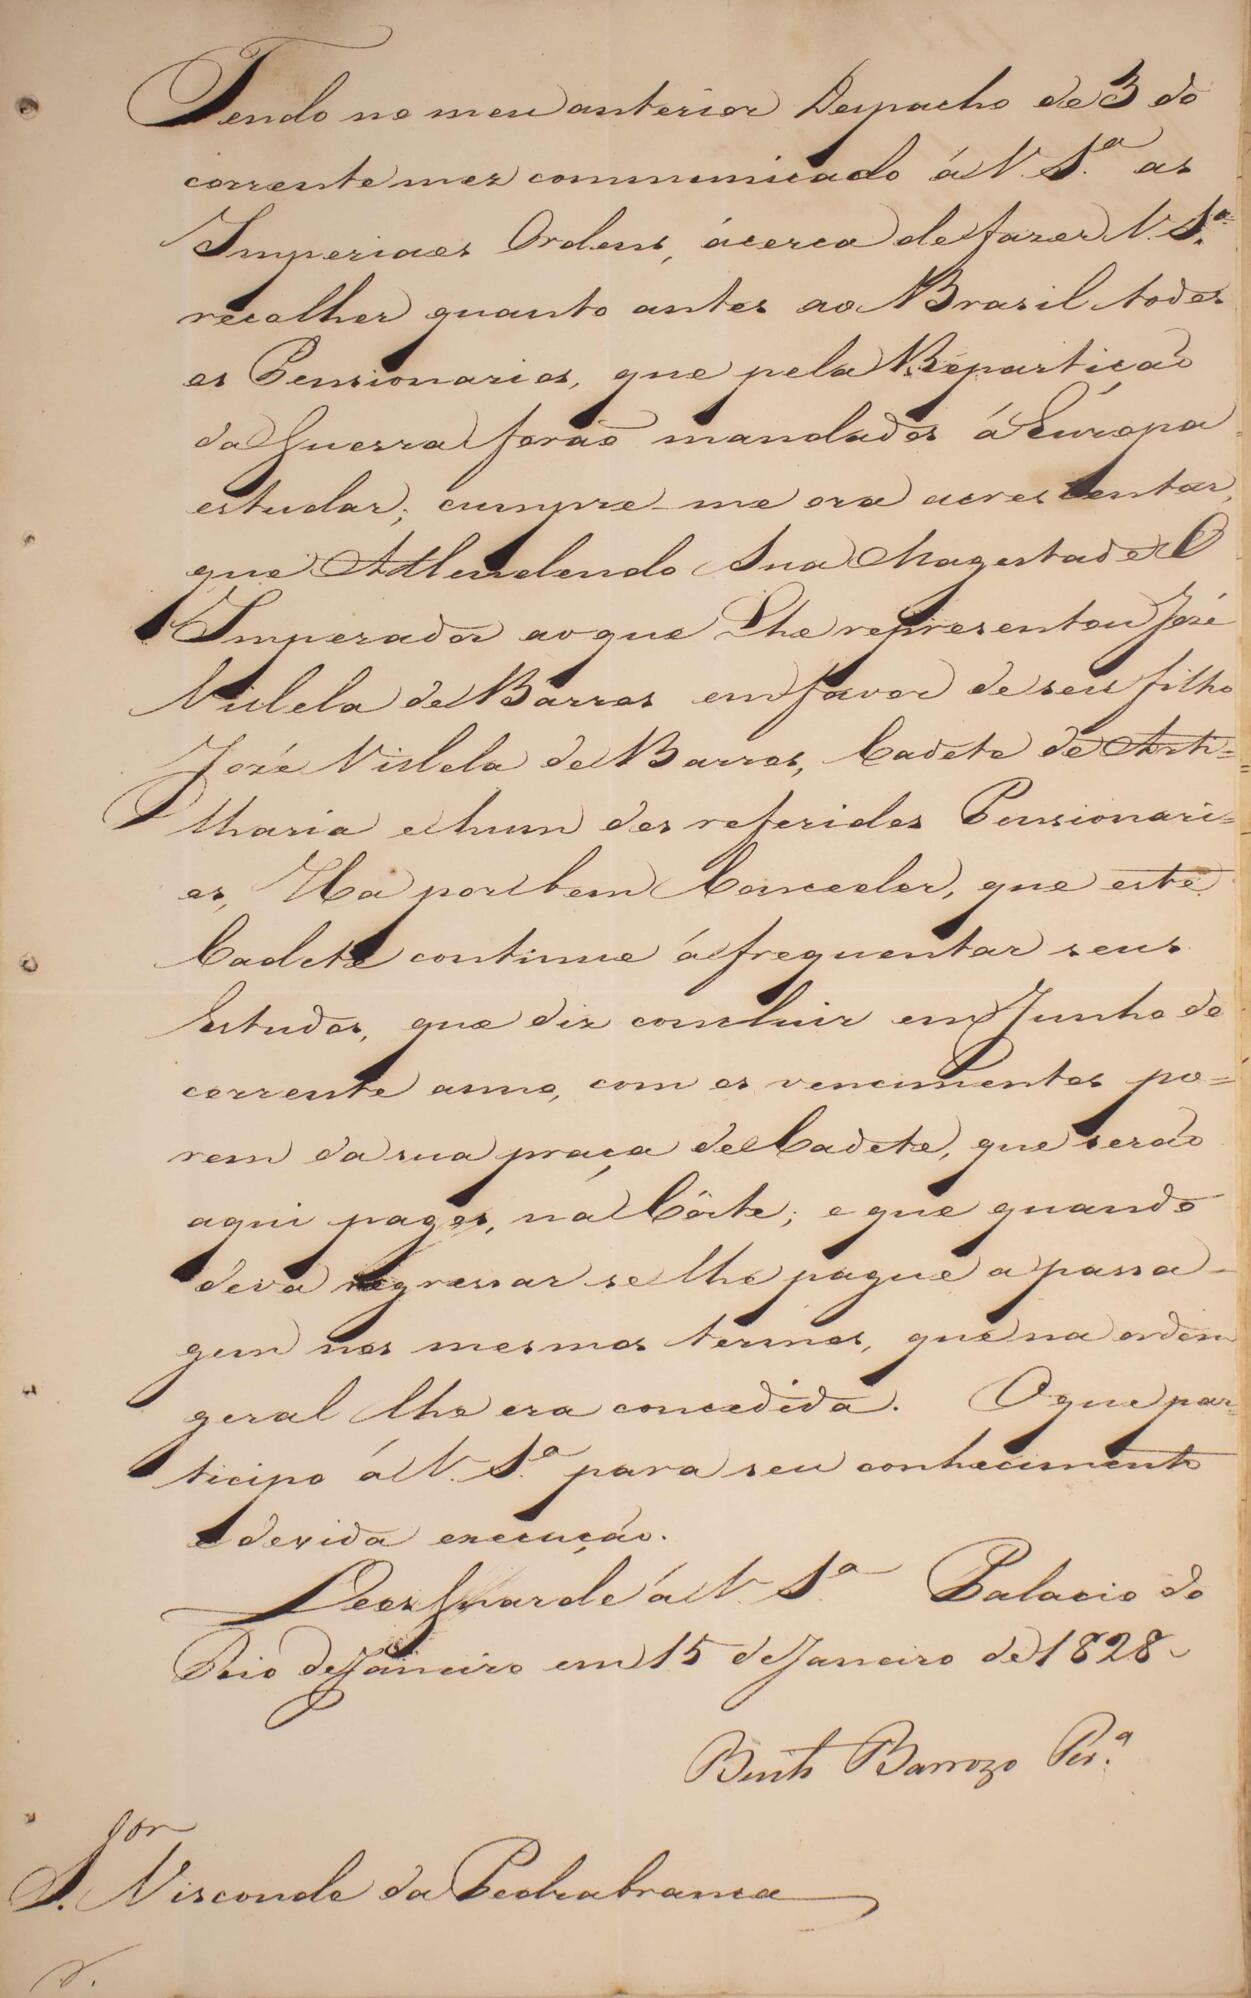 Tendo no meu anterior Despacho de 3 do
corrente mez communicado á V. S.ª as
Imperiaes Ordens, ácerca de fazer V. S.ª
recolher quanto antes ao Brasil todos
os Pensionarios, que pela Repartição
da Guerra forão mandados á Európa
estudar; cumpre-me ora acrescentar,
que Attendendo Sua Magestade O
Imperador ao que Lhe representou José
Villela de Barros em favor de seu filho
José Villela de Barros, Cadete de Arti=
lharia e hum dos referidos Pensionari=
os, Ha por bem Conceder, que este
Cadete continue á frequentar seus
Estudos, que diz concluir em Junho do
corrente anno, com os vencimentos po=
rem da sua praça de Cadete, que serão
aqui pagos, na Côrte; e que quando
deva regressar se lhe pague a passa-
gem nos mesmos termos, que na ordem
geral lhe era concedida. O que par=
ticipo á V. S.ª para seu conhecimento
e devida execução.
Deos Guarde á V. S.ª Palacio do
Rio de Janeiro em 15 de Janeiro de 1828
Bento Barrozo Per.ª
S.or Visconde da Pedrabranca